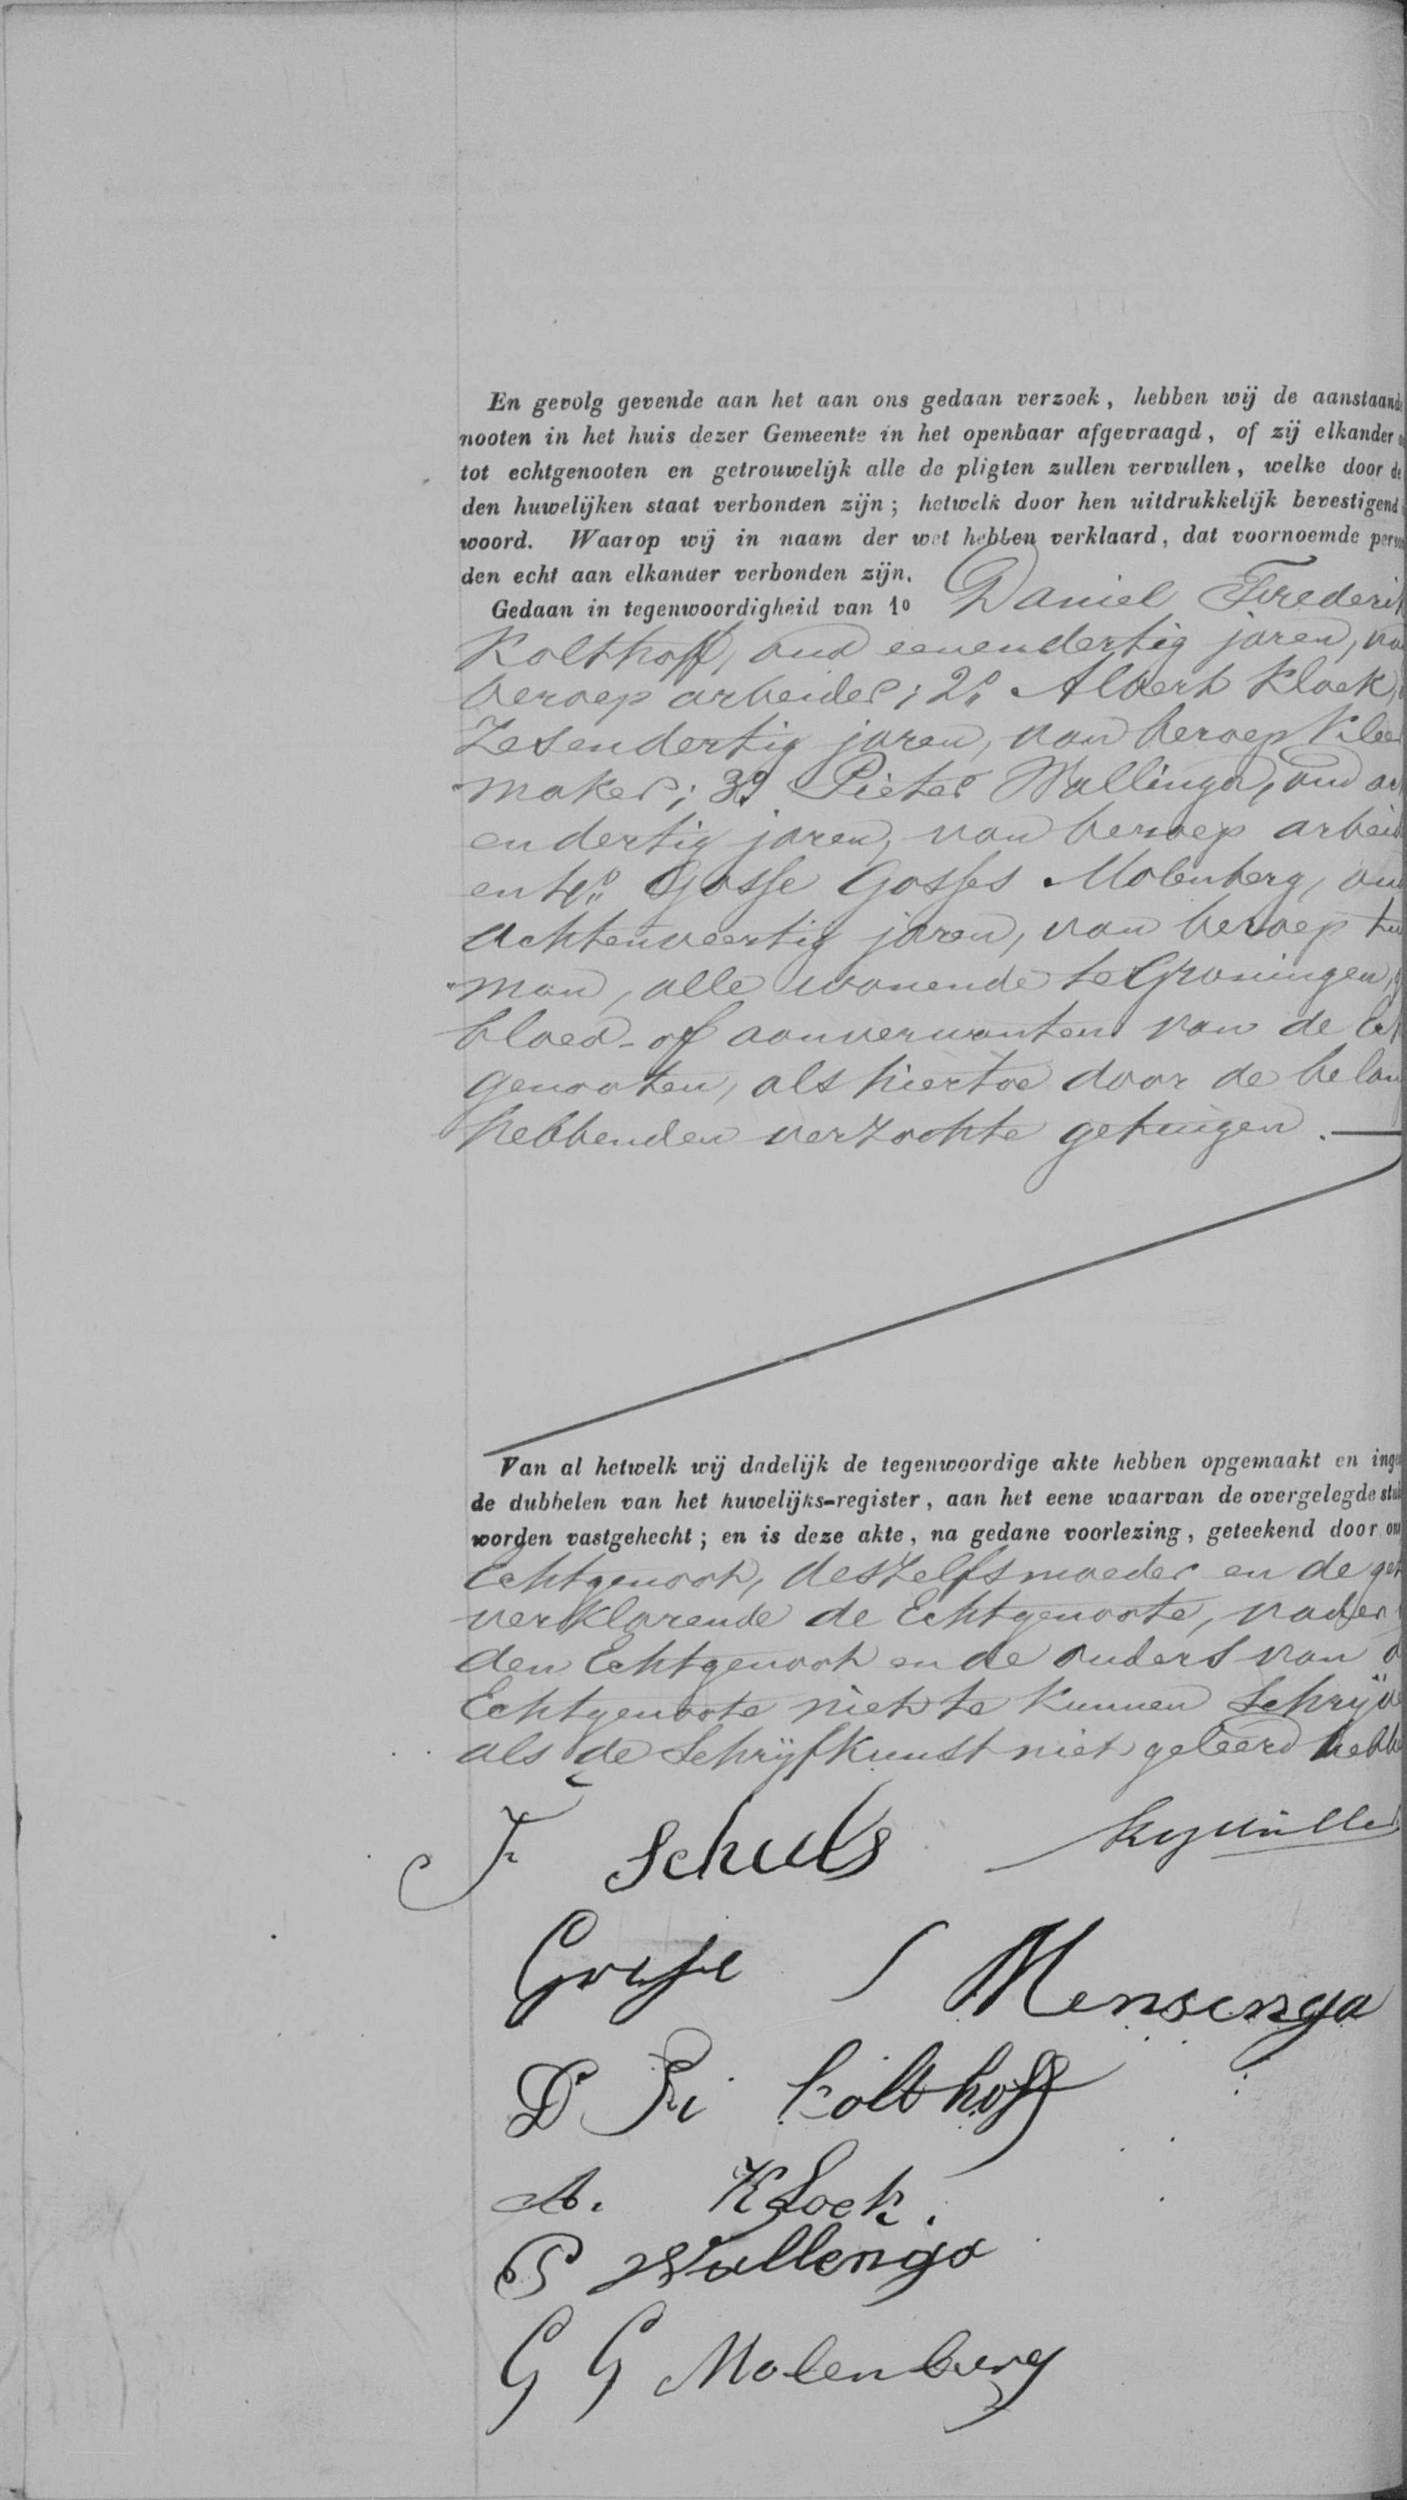 En gevolg gevende aan het aan ons gedaan verzoek, hebben wij de aanstaand
nooten in het huis dezer Gemeente in het openbaar afgevraagd, of zij elkander
tot echtgenooten en getrouwelijk alle de pligten zullen vervullen, welke door de
den huwelijken staat verbonden zijn; hetwelk door hen uitdrukkelijk bevestigend
woord. Waarop wij in naam der wet hebben verklaard, dat voornoemde perso
den echt aan elkander verbonden zijn.
Gedaan in tegenwoordigheid van 1o Daniel Frederik
Kolthoff, oud eenendertig jaren, va
beroep arbeider; 2o Albert Kloek,
Zesendertig jaren, van beroep Klee
maker; 3o Pieter Wallinga, oud
endertig jaren, van beroep arbeid
en 4o Gosse Gosses Molenberg, oud
achtenveertig jaren, van beroep
man, alle wonende te Groningen,
bloed- of aanverwanten van de
genooten, als hiertoe door de belan
hebbenden verzochte getuigen.
Van al hetwelk wij dadelijk de tegenwoordige akte hebben opgemaakt en inge
de dubbelen van het huwelijks-register, aan het eene waarvan de overgelegde stuk
worden vastgehecht; en is deze akte, na gedane voorlezing, geteekend door ons
Echtgenoot, deszelfs moeder en de get
verklarende de Echtgenoote, vader
den Echtgenoot en de ouders van d
Echtgenoote niet te kunnen Schrijve
als de Schrijfkunst niet geleerd hebbe
F Schuls
Mensinga
D Fr Kolthoff
A. Kloek.
P Wallenga
G G Molenberg